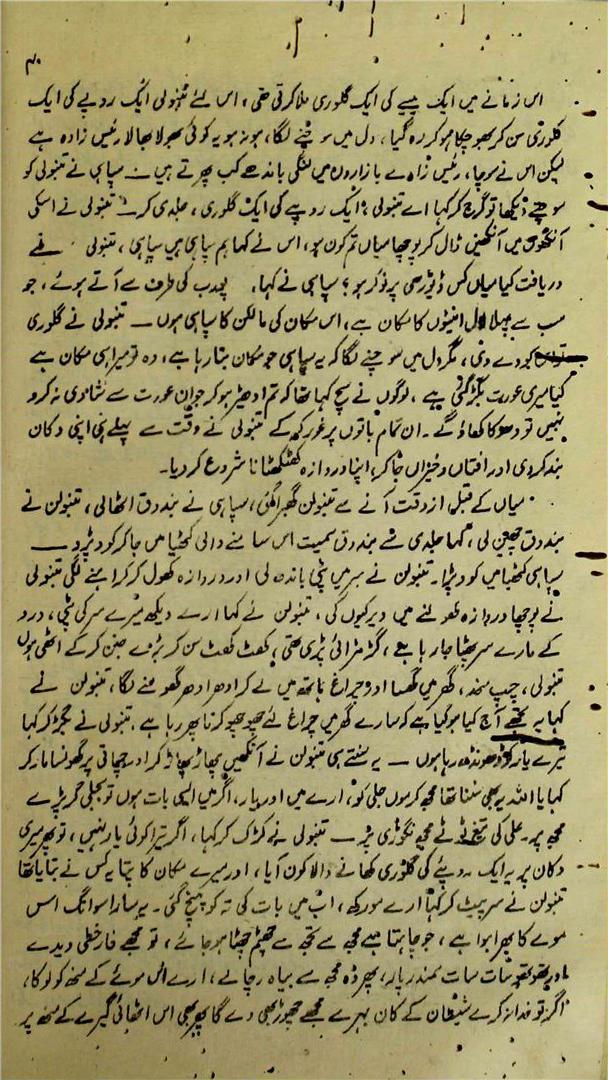 ۴۰
اس زمانے میں ایک پیسے کی ایک گلوری ملا کرتی تھی، اس لئے تنبولی ایک روپے کی ایک
گلوری سن کر بھوچکا ہو کر رہ گیا، دل میں سوچنے لگا، ہو نہ ہو یہ کوئی بھولا بھالا رئیس زادہ ہے
لیکن اس نے سوچا، رئیس زادے بازاروں میں لنگی باندھے کب پھرتے ہیں ۔ سپاہی نے تنبولی کو
سوچتے دیکھا تو گرج کر کہا اے تنبولی؟ ایک روپے کی ایک گلوری، جلدی کر ۔ تنبولی نے اسکی
آنکھوں میں آنکھیں ڈال کر پوچھا میاں تم کون ہو، اس نے کہا ہم سپاہی ہیں سپاہی، تنبولی نے
دریافت کیا میاں کس ڈیوڑھی پر نوکر ہو؟ سپاہی نے کہا، پورب کی طرف سے آتے ہوئے، جو
سب سے پہلا لال اینٹوں کا مکان ہے، اس مکان کی مالکن کا سپاہی ہوں ۔ تنبولی نے گلوری
تو اس کو دے دی، مگر دل میں سوچنے لگا کہ یہ سپاہی جو مکان بتا رہا ہے، وہ تو میرا ہی مکان ہے
کیا میری عورت بگڑ گئی ہے، لوگوں نے سچ کہا تھا کہ تم ادھیڑ ہو کر جوان عورت سے شادی نہ کرو
نہیں تو دھوکا کھاؤ گے ۔ ان تمام باتوں پر غور کر کے تنبولی نے وقت سے پہلے ہی اپنی دکان
بند کر دی اور افتاں و خیزاں جا کر، اپنا دروازہ کھٹکھٹانا شروع کر دیا ۔
میاں کے قبل از وقت آنے سے تنبولن گھبرا گئی، سپاہی نے بندوق اٹھالی، تنبولن نے
بندوق چھین لی، کہا جلدی سے بندوق سمیت اس سامنے والی کٹھیا میں جا کر کود پڑو ۔
سپاہی کٹھیا میں کود پڑا ۔ تنبولن نے سر میں پٹی باندھ لی اور دروازہ کھول کر کراہنے لگی تنبولی
نے پوچھا دروازہ کھولنے میں دیر کیوں کی، تنبولن نے کہا ارے دیکھ میرے سر کی پٹی، درد
کے مارے سر پھٹا جا رہا ہے، گڑمڑائی پڑی تھی، کھٹ کھٹ سن کر بڑے جتن کر کے اٹھی ہوں
تنبولی، چپ سند، گھر میں گھسا اور چراغ ہاتھ میں لے کر ادھر ادھر گھومنے لگا، تنبولن نے
کہا یہ تجھے آج کیا ہو گیا ہے کہ سارے گھر میں چراغ لئے چھو چھو کرتا پھر رہا ہے، تنبولی نے بگڑ کر کہا
تیرے یار کو ڈھونڈھ رہا ہوں ۔ یہ سنتے ہی تنبولن نے آنکھیں پھاڑ پھاڑ کر اور چھاتی پر گھونسا مار کر
کہا یا اللہ یہ بھی سننا تھا مجھ کرموں جلی کو، ارے میں اور یار، اگر میں ایسی بات ہوں تو بجلی گر پڑے
مجھ پر ۔ علی کی تیغ ٹوٹے مجھ نگوڑی پر ۔ تنبولی نے کڑک کر کہا، اگر تیرا کوئی یار نہیں، تو پھر میری
دکان پر یہ ایک روپئے کی گلوری کھانے والا کون آیا، اور میرے مکان کا پتہ یہ کس نے بتایا تھا
تنبولن نے سر پیٹ کر کہا ارے مورکھ، اب میں بات کی تہ کو پہنچ گئی ۔ یہ سارا سوانگ اس
موے کا بھرا ہوا ہے، جو چاہتا ہے مجھ سے تجھ سے چھٹم چھٹا ہو جائے، تو مجھے فارغطی دیدے
اور تھو تھو سات سات سمندر پار، پھر وہ مجھ سے بیاہ رچائے، ارے اس موئے کے منھ کو لوکا،
اگر تو خدا نہ کرے شیطان کے کان بہرے مجھے چھوڑ بھی دے گا پھر بھی اس اٹھائی گیرے کے منھ پر